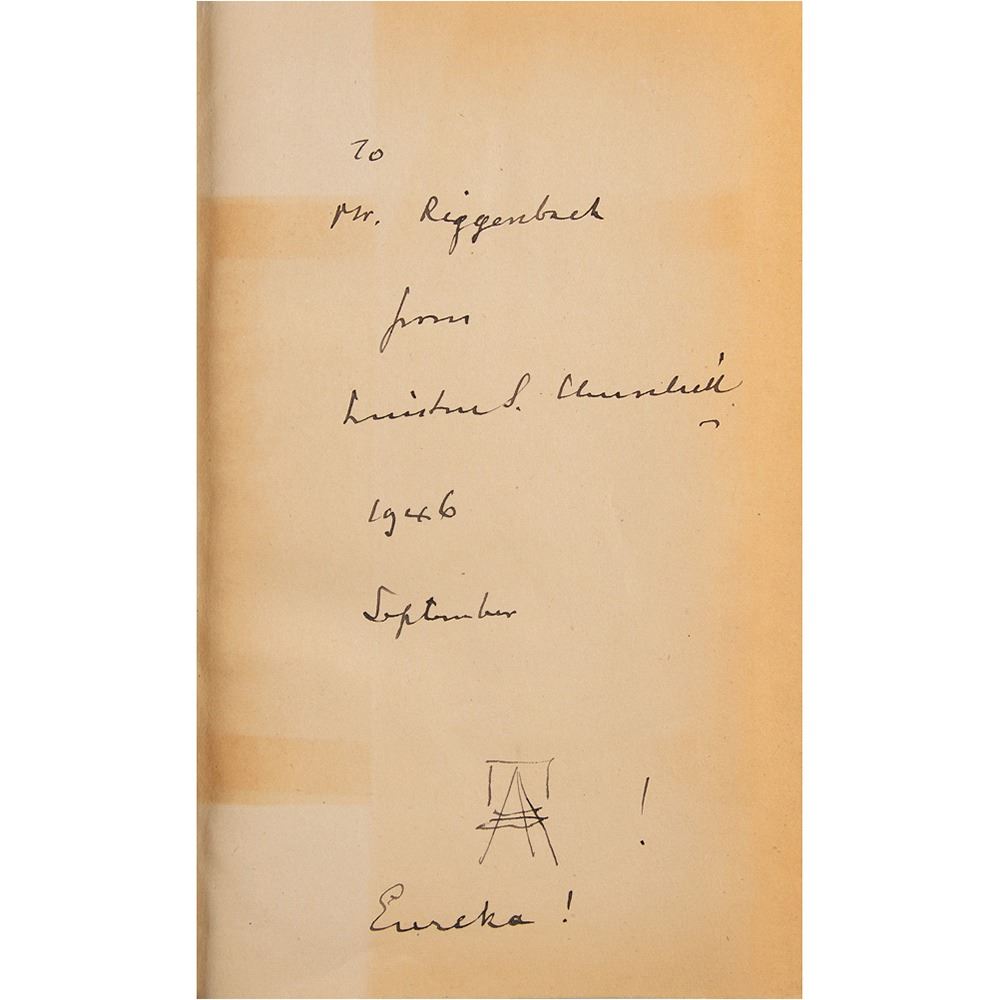 To
Mr. Riggenbach
from
Winston S. Churchill
1946
September
!
Eureka !